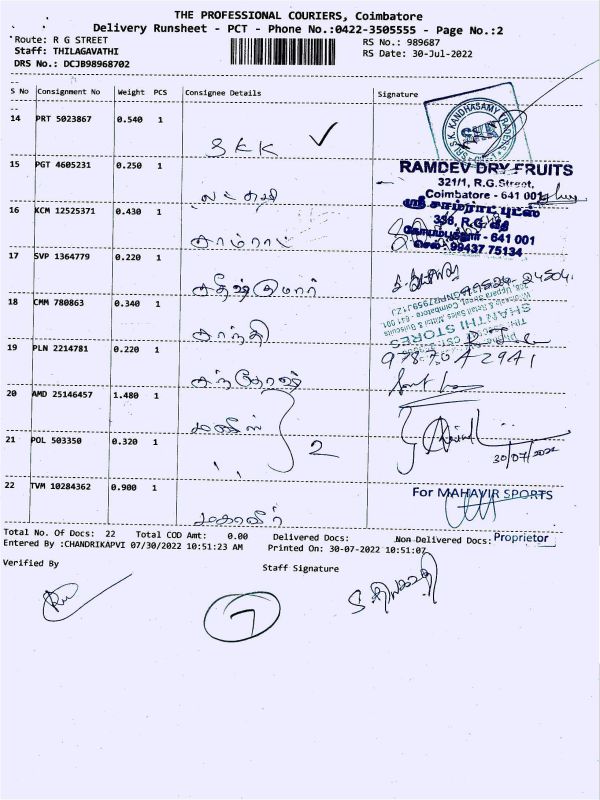 THE PROFESSIONAL COURIERS, Coimbatore
Delivery Runsheet - PCT - Phone No.:0422-3505555 - Page No.:2
Route: R G STREET
Staff: THILAGAVATHI
DRS No.: DCJB98968702
RS No.: 989687
RS Date: 30-Jul-2022
S No Consignment No Weight PCS Consignee Details Signature
14 PRT 5023867 0.540 1 SKK
S.K. KANDHASAMY TRADERS
SKK
15 PGT 4605231 0.250 1
RAMDEV DRY FRUITS
321/1, R.G.Street,
Coimbatore - 641 001
16 KCM 12525371 0.430 1 சாம்ராட்
ஸ்ரீ சாம்ராட் புட்ஸ்
336, R.G. வீதி
கோயம்புத்தூர் - 641 001
செல் : 99437 75134
17 SVP 1364779 0.220 1 சதீஷ்குமார்
18 CMM 780863 0.340 1 சாந்தி
SHANTHI STORES
19 PLN 2214781 0.220 1 சந்தோஷ்
20 AMD 25146457 1.480 1
21 POL 503350 0.320 1 " 2
30/07/2022
22 TVM 10284362 0.900 1 மகாவீர்
For MAHAVIR SPORTS
Proprietor
Total No. Of Docs: 22 Total COD Amt: 0.00 Delivered Docs: Non Delivered Docs:
Entered By :CHANDRIKAPVI 07/30/2022 10:51:23 AM Printed On: 30-07-2022 10:51:07
Verified By Staff Signature
7